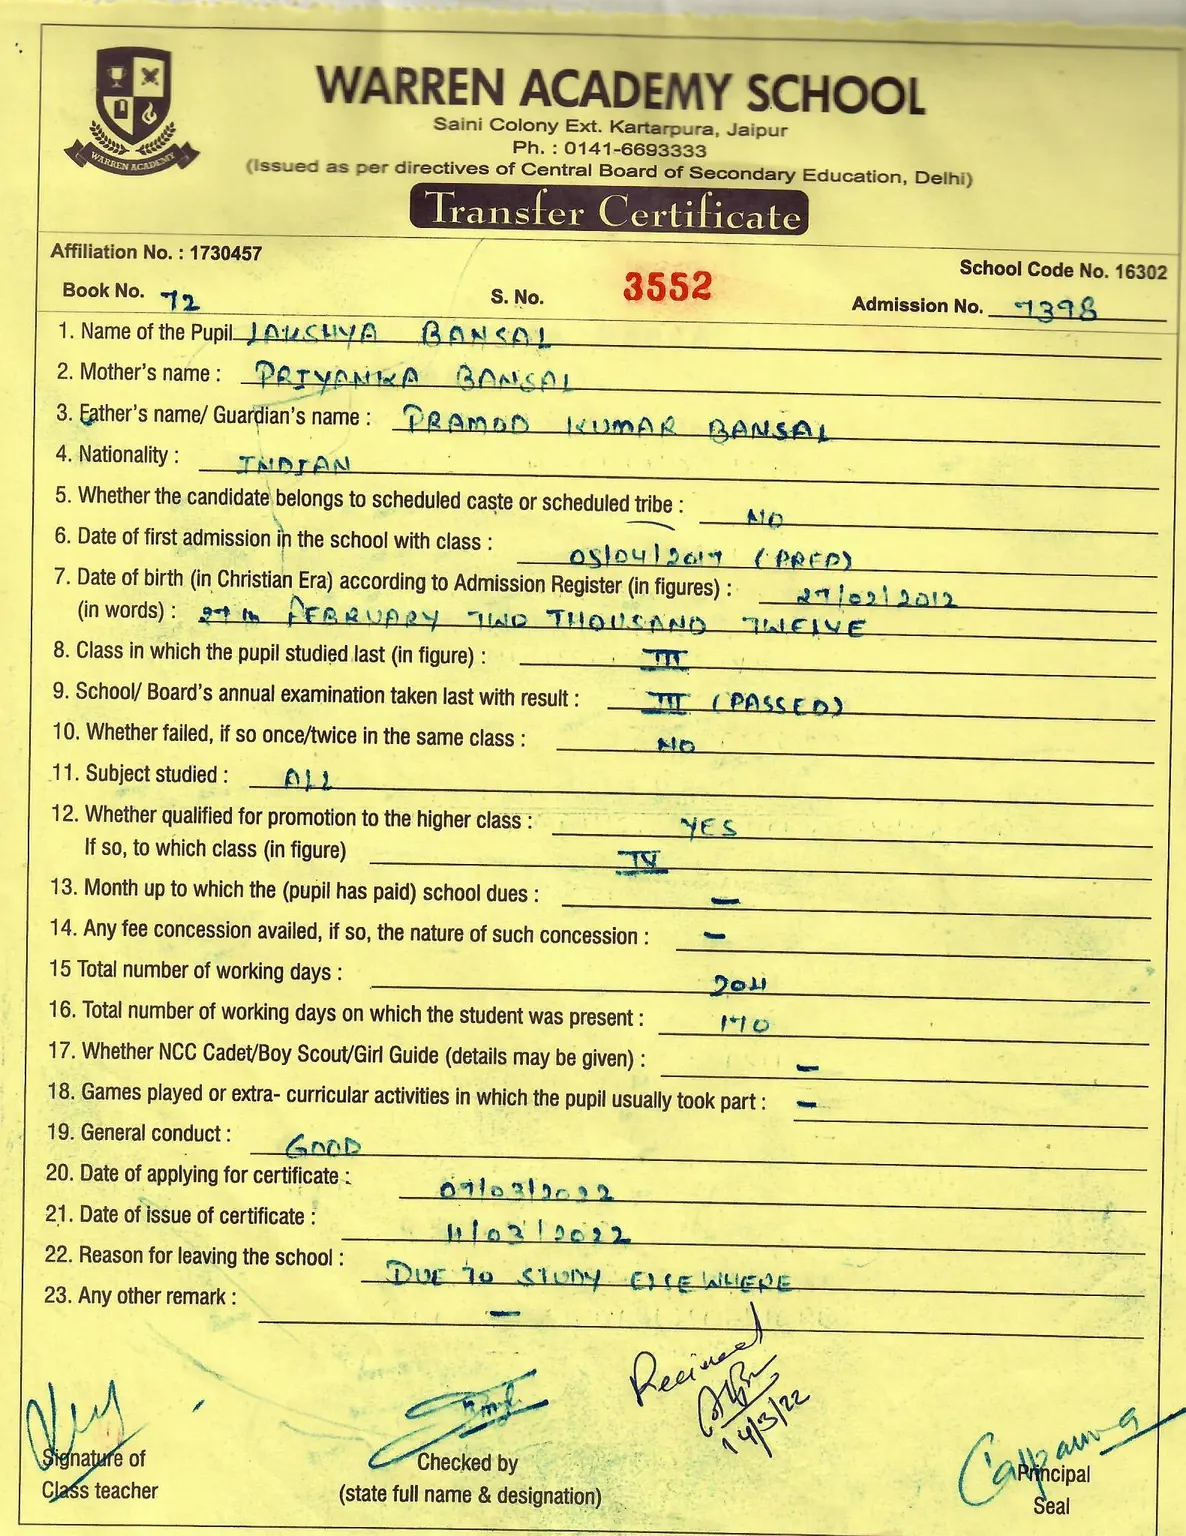 WARREN ACADEMY
WARREN ACADEMY SCHOOL
Saini Colony Ext. Kartarpura, Jaipur
Ph. : 0141-6693333
(Issued as per directives of Central Board of Secondary Education, Delhi)
Transfer Certificate
Affiliation No. : 1730457
School Code No. 16302
Book No. 72 S. No. 3552 Admission No. 7398
1. Name of the Pupil LAKSHYA BANSAL
2. Mother's name : PRIYANKA BANSAL
3. Father's name/ Guardian's name : PRAMOD KUMAR BANSAL
4. Nationality : INDIAN
5. Whether the candidate belongs to scheduled caste or scheduled tribe : NO
6. Date of first admission in the school with class : 05/04/2017 (PREP)
7. Date of birth (in Christian Era) according to Admission Register (in figures) : 27/02/2012
(in words) : 27th FEBRUARY TWO THOUSAND TWELVE
8. Class in which the pupil studied last (in figure) : III
9. School/ Board's annual examination taken last with result : III (PASSED)
10. Whether failed, if so once/twice in the same class : NO
11. Subject studied : ALL
12. Whether qualified for promotion to the higher class : YES
If so, to which class (in figure) IV
13. Month up to which the (pupil has paid) school dues : -
14. Any fee concession availed, if so, the nature of such concession : -
15 Total number of working days : 204
16. Total number of working days on which the student was present : 170
17. Whether NCC Cadet/Boy Scout/Girl Guide (details may be given) : -
18. Games played or extra- curricular activities in which the pupil usually took part : -
19. General conduct : GOOD
20. Date of applying for certificate : 07/03/2022
21. Date of issue of certificate : 11/03/2022
22. Reason for leaving the school : DUE TO STUDY ELSEWHERE
23. Any other remark : -
Recieved
14/3/22
Signature of
Class teacher
Checked by
(state full name & designation)
Principal
Seal